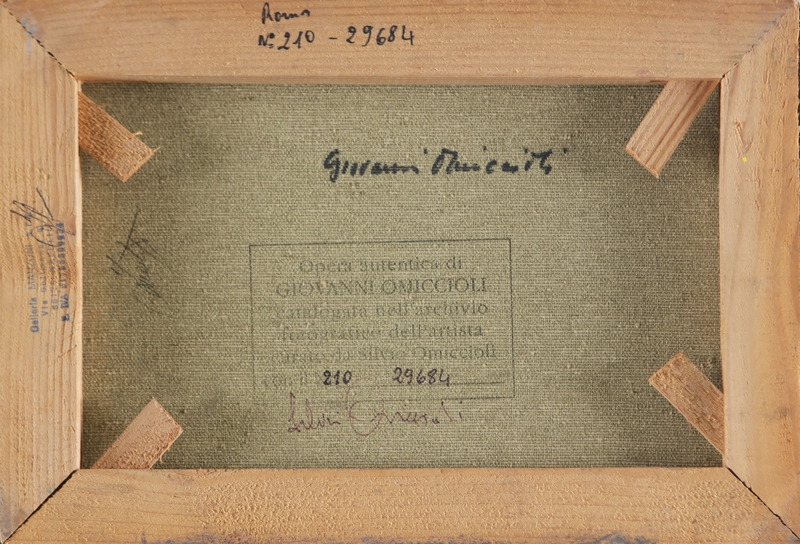 Roma
N. 210 - 29684
Giovanni Omiccioli
Opera autentica di
GIOVANNI OMICCIOLI
catalogata nell'archivio
fotografico dell'artista
curato da Silvio Omiccioli
con il 210 29684
Galleria
Via